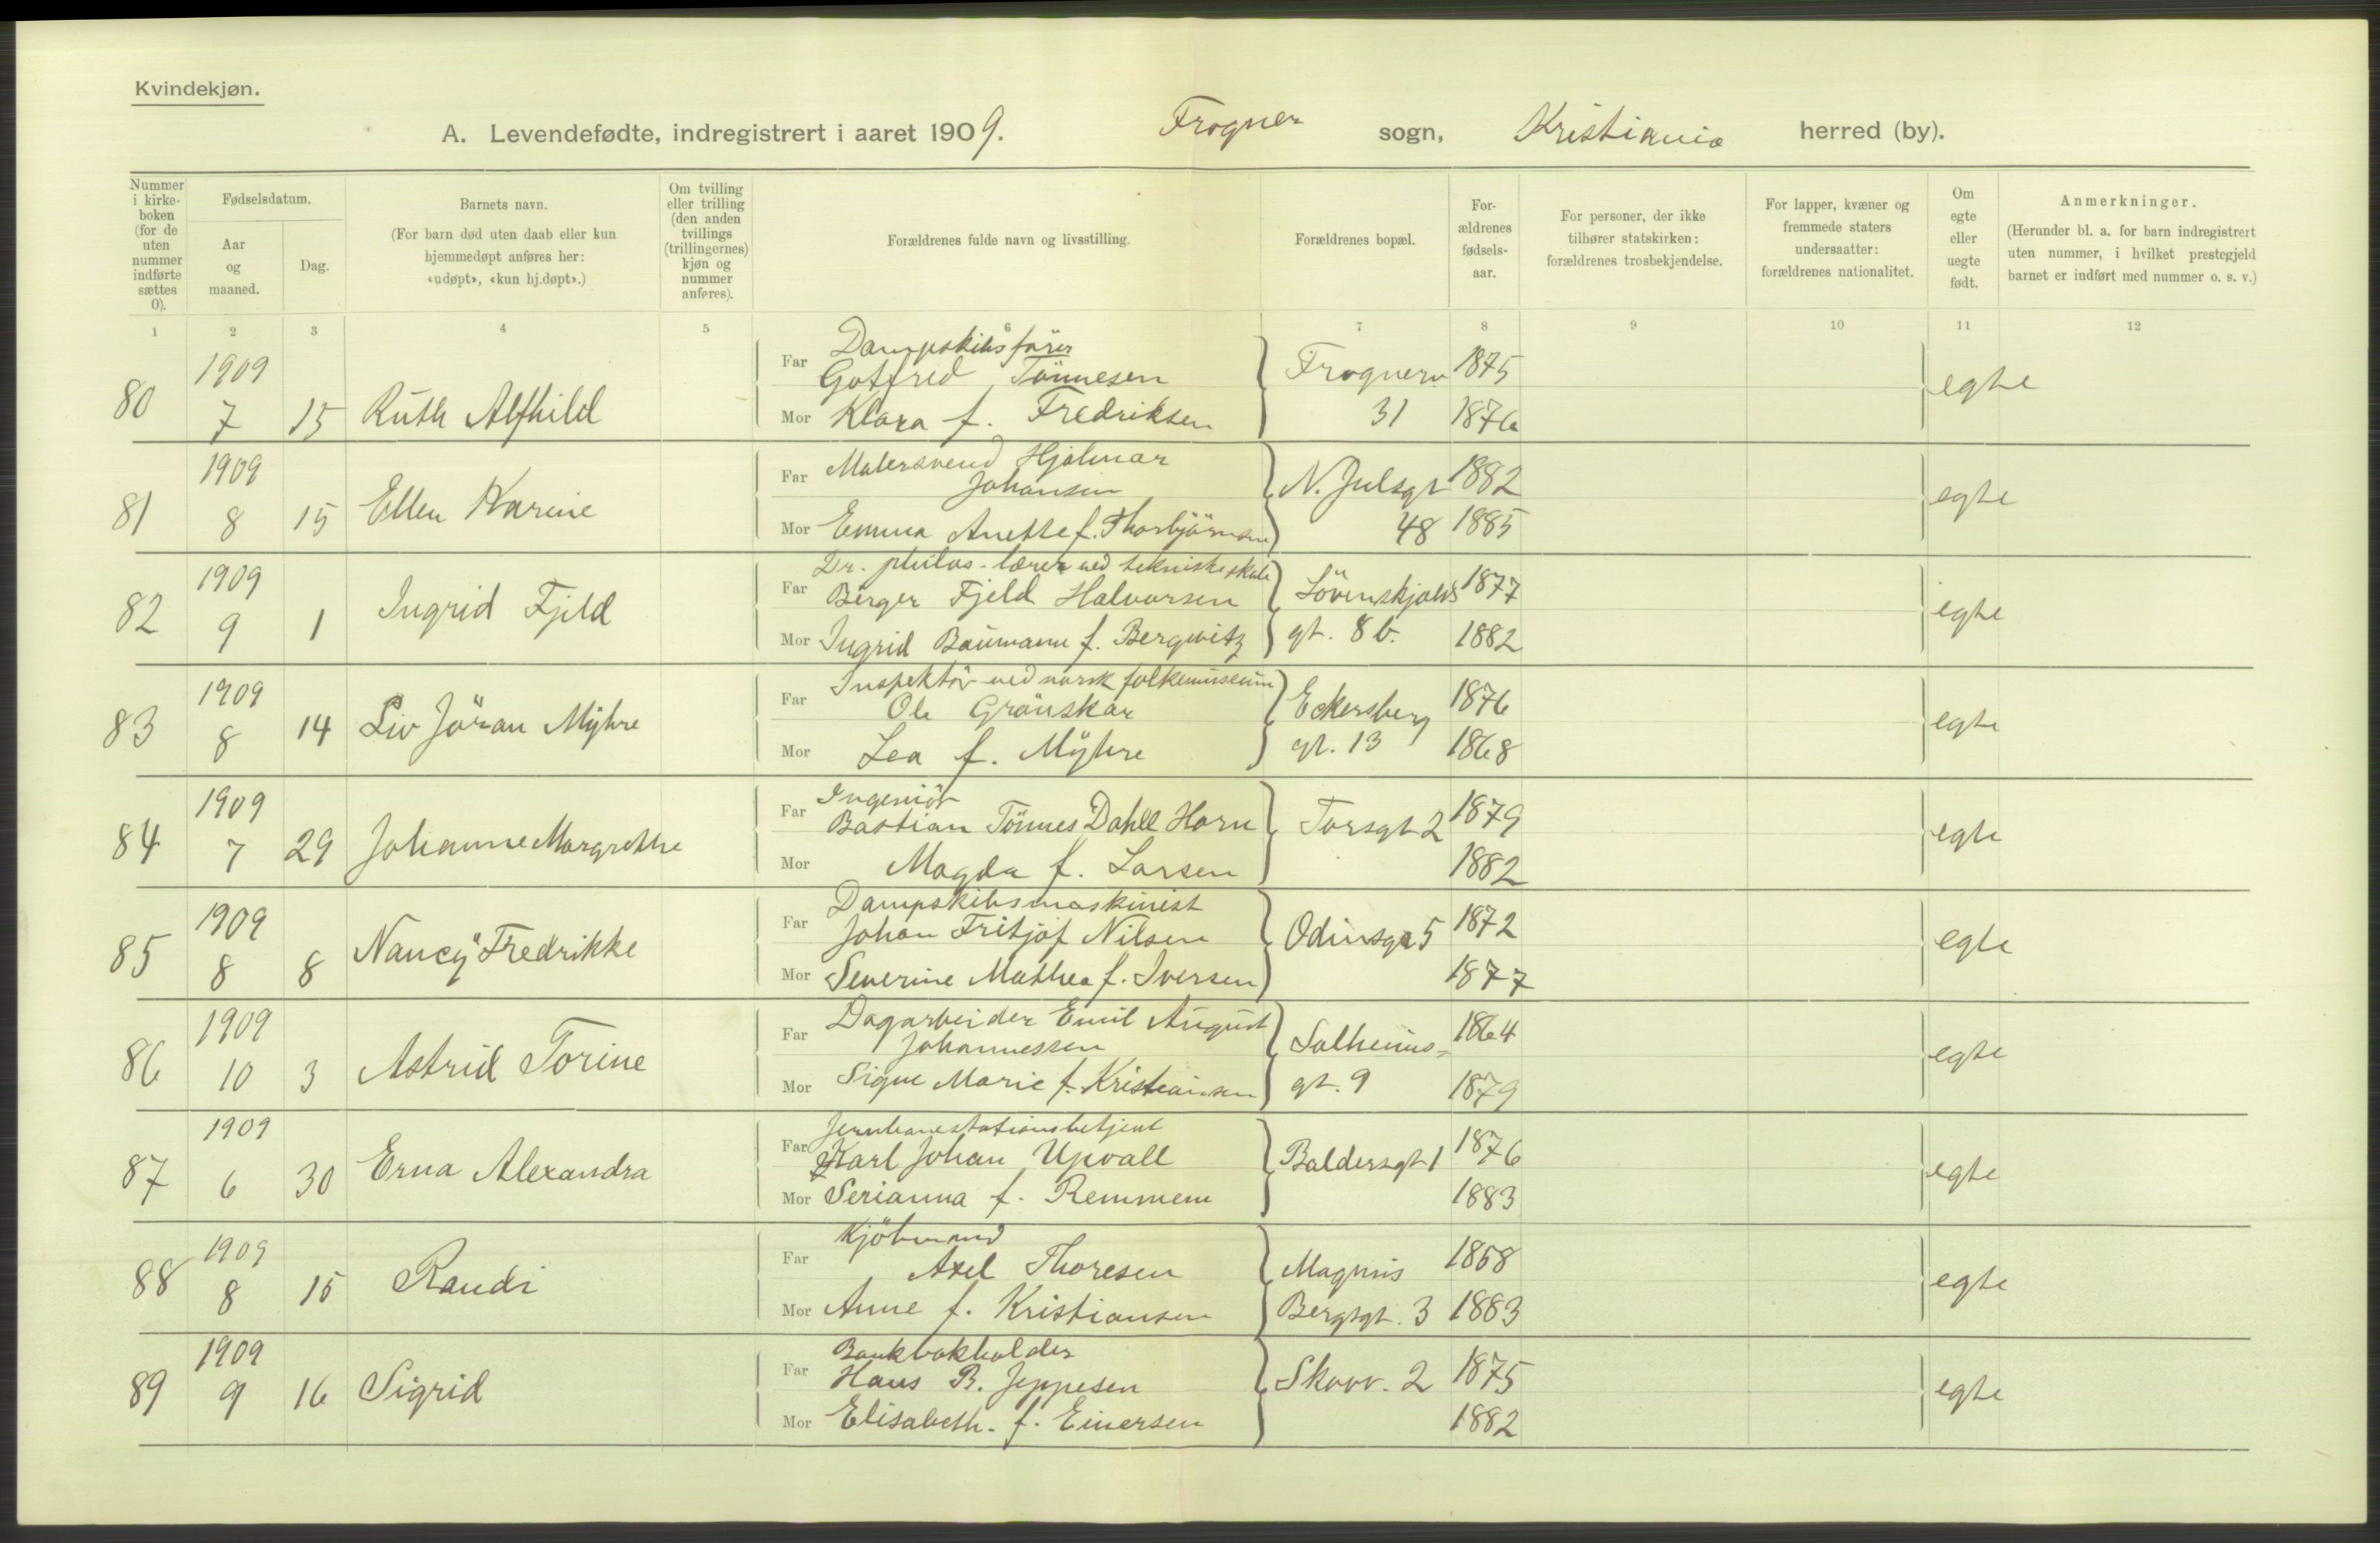 Kvindekjøn.
A. Levendefødte, indregistrert i aaret 1909. Frogner sogn, Kristiania herred (by).
Nummer i kirke-boken (for de uten nummer indførte sættes 0).
Fødselsdatum.
Aar og maaned.
Dag.
Barnets navn.
(For barn død uten daab eller kun hjemmedøpt anføres her: «udøpt», «kun hj.døpt».)
Om tvilling eller trilling (den anden tvillings (trillingernes) kjøn og nummer anføres).
Forældrenes fulde navn og livsstilling.
Forældrenes bopæl.
For-ældrenes fødsels-aar.
For personer, der ikke tilhører statskirken: forældrenes trosbekjendelse.
For lapper, kvæner og fremmede staters undersaatter: forældrenes nationalitet.
Om egte eller uegte født.
Anmerkninger.
(Herunder bl. a. for barn indregistrert uten nummer, i hvilket prestegjeld barnet er indført med nummer o. s. v.)
1 2 3 4 5 6 7 8 9 10 11 12
80 1909 7 15 Ruth Alfhild
Far Dampskibsfører
Gotfred Tönnesen Frognerv 1875 egte
Mor Klara f. Fredriksen 31 1876
81 1909 8 15 Ellen Karine
Far Malersvend Hjalmar
Johansen N. Julsgt 1882 egte
Mor Emma Anette f. Thorbjörnsen 48 1885
82 1909 9 1 Ingrid Fjeld
Far Dr. philos. lærer ved tekniske skole
Birger Fjeld Halvorsen Lövenskjolds 1877 egte
Mor Ingrid Baumann f. Bergwitz gt. 8 b. 1882
83 1909 8 14 Liv Jöran Myhre
Far Inspektör ved norsk folkemuseum
Ole Grönskar Eckersberg 1876 egte
Mor Lea f. Myhre gt. 13 1868
84 1909 7 29 Johanne Margrethe
Far Ingeniör
Bastian Tönnes Dahll Horn Torsgt 2 1879 egte
Mor Magda f. Larsen 1882
85 1909 8 8 Nancy Fredrikke
Far Dampskibsmaskinist
Johan Fritjof Nilsen Odinsgt 5 1872 egte
Mor Severine Mathea f. Iversen 1877
86 1909 10 3 Astrid Torine
Far Dagarbeider Emil August
Johannessen Solheims- 1864 egte
Mor Signe Marie f. Kristiansen gt. 9 1879
87 1909 6 30 Erna Alexandra
Far Jernbanestationsbetjent
Karl Johan Upvall Baldersgt 1 1876 egte
Mor Serianna f. Remmem 1883
88 1909 8 15 Randi
Far Kjöbmand
Axel Thoresen Magnus 1868 egte
Mor Anne f. Kristiansen Bergsgt. 3 1883
89 1909 9 16 Sigrid
Far Bankbokholder
Hans B. Jeppesen Skovv. 2 1875 egte
Mor Elisabeth. f. Einersen 1882